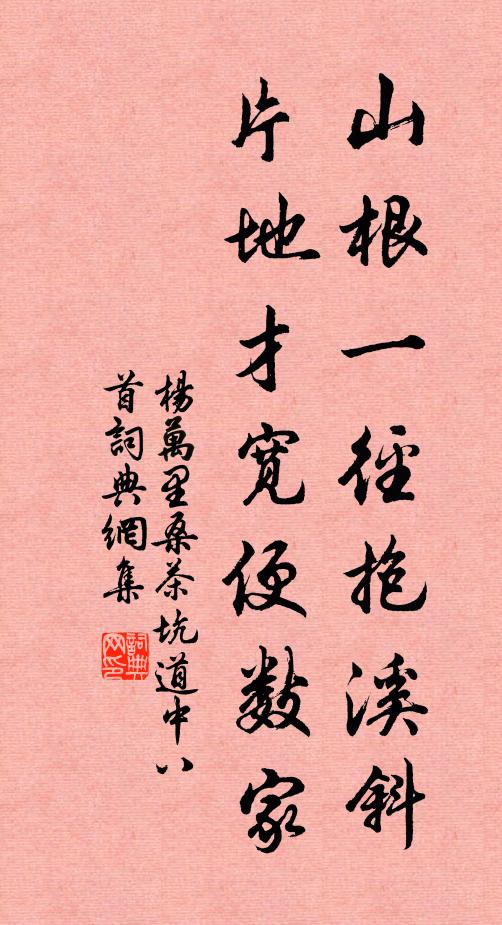 山根一徑抱溪斜
片地才寬便數家
楊萬里桑茶坑道中八
首詞典網集
詞典网印